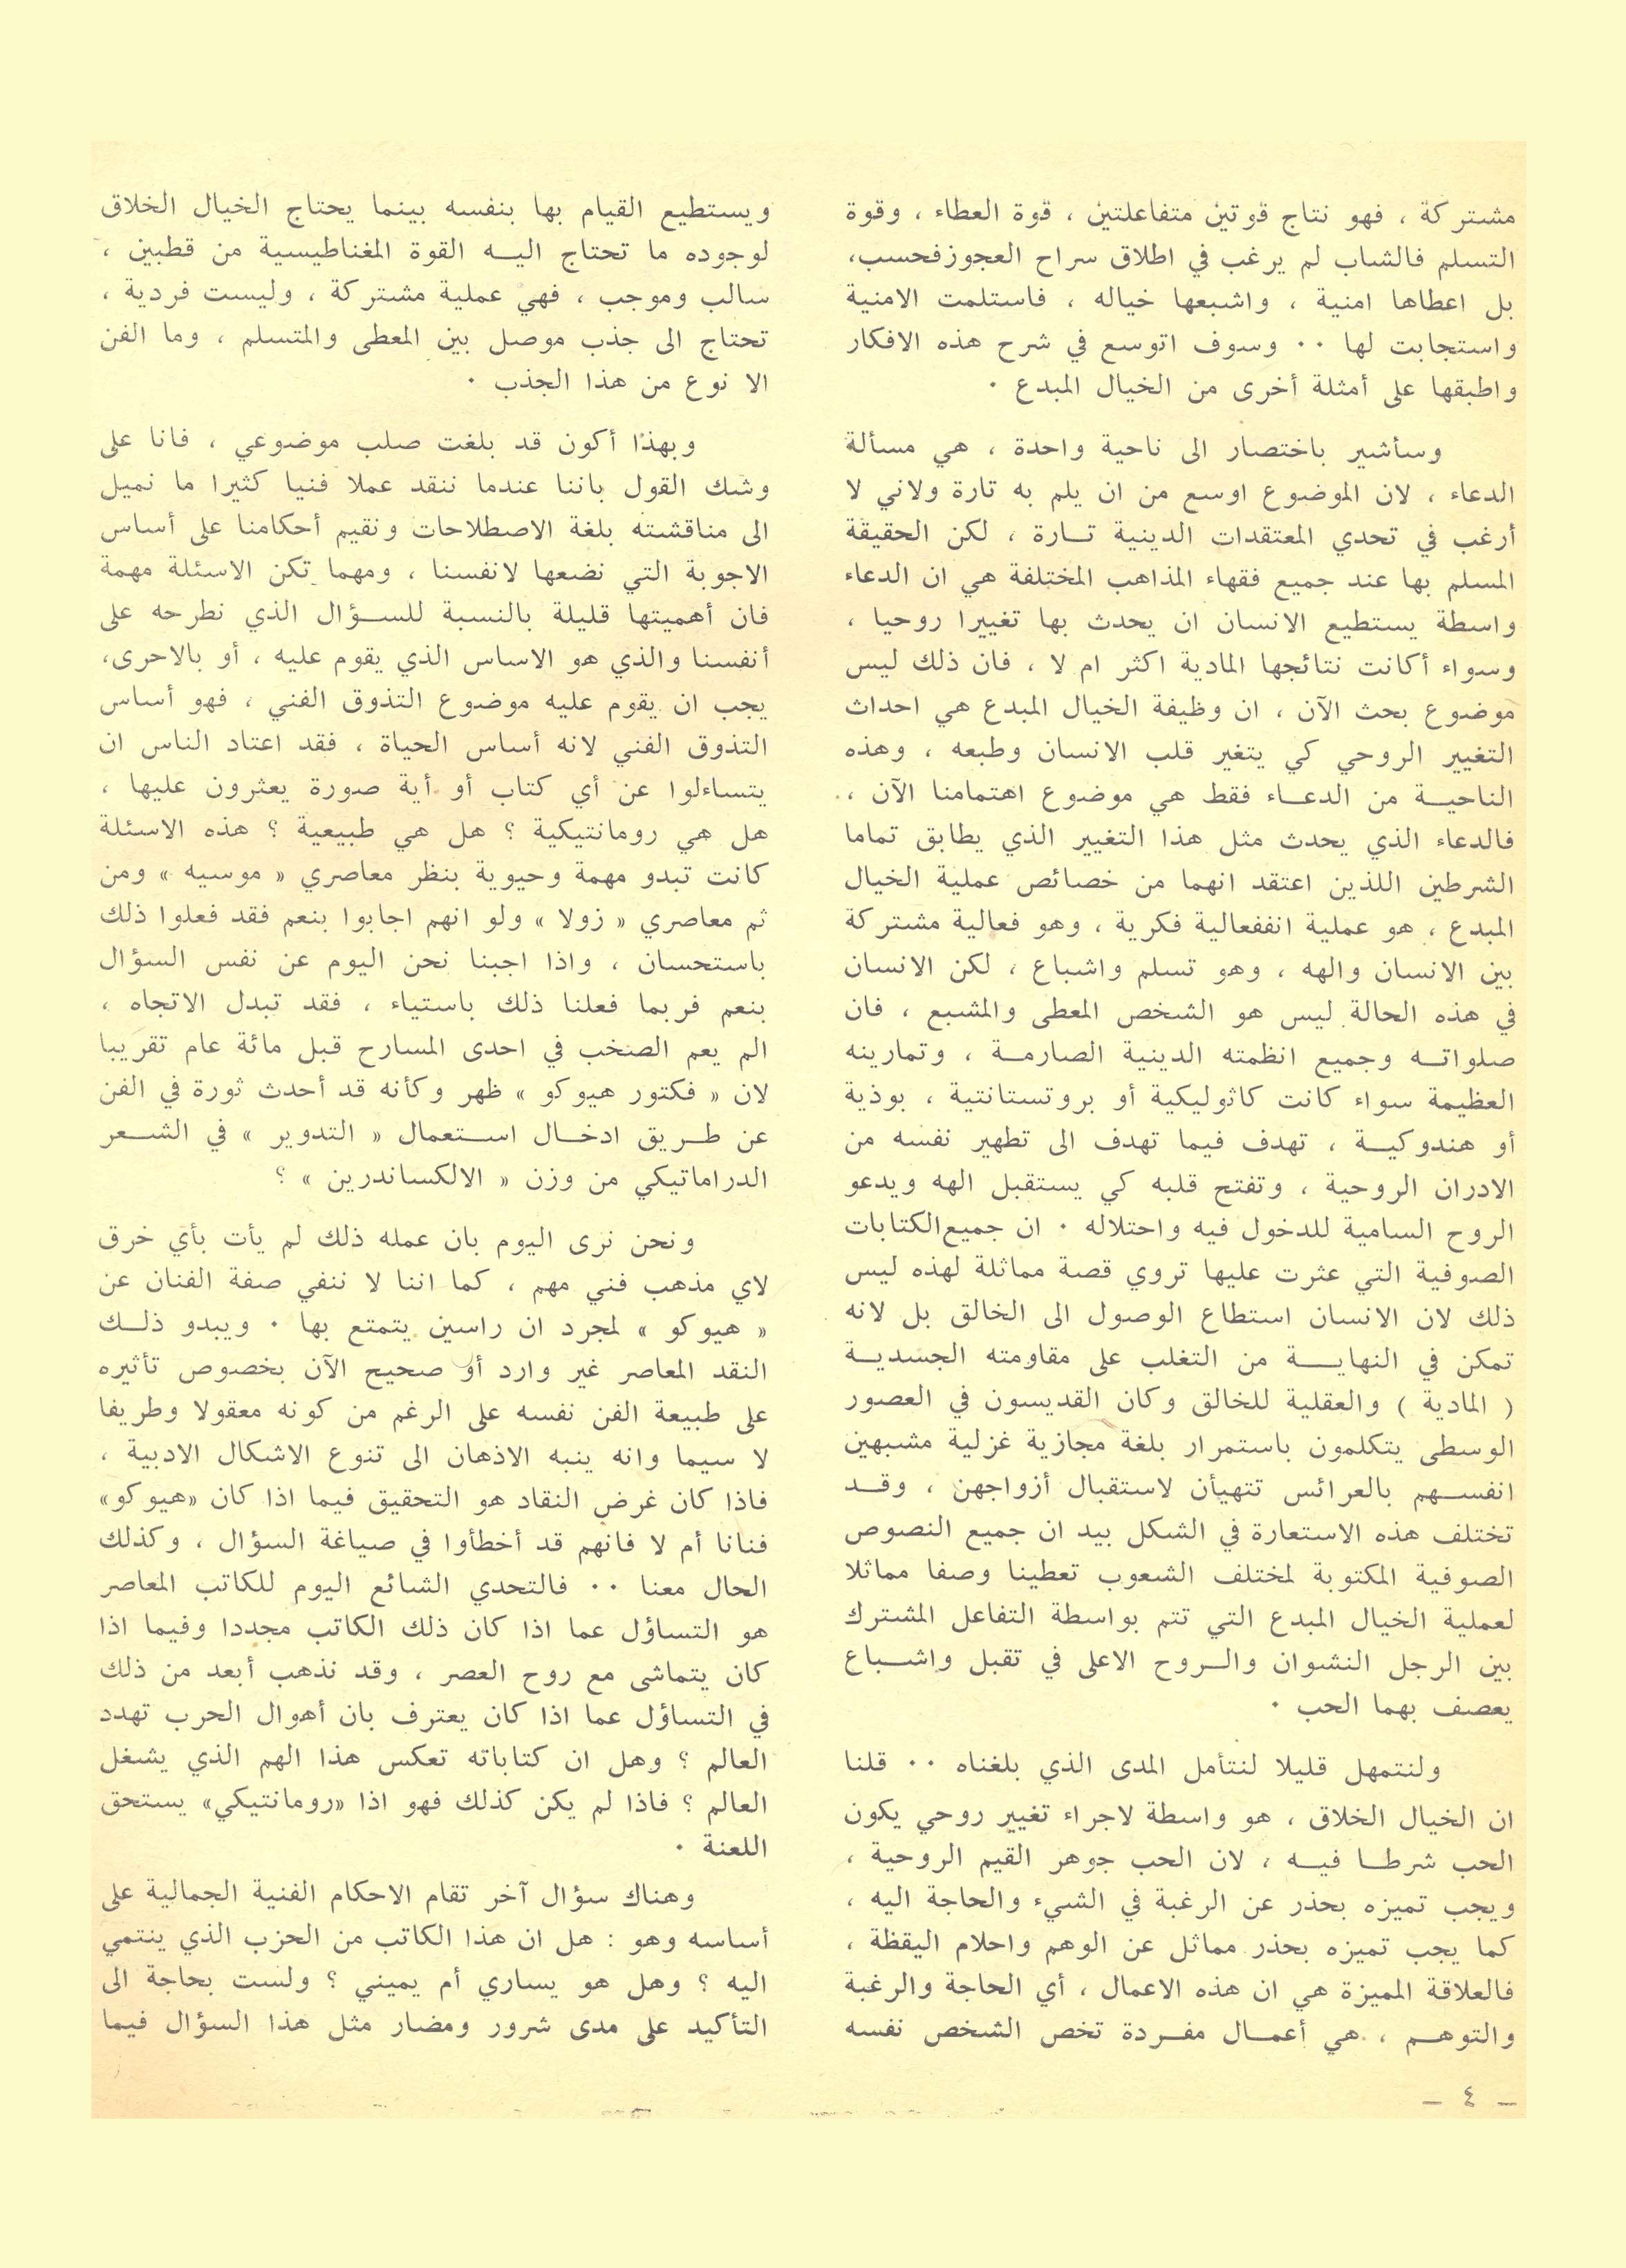 مشتركة ، فهو نتاج قوتين متفاعلتين ، قوة العطاء ، وقوة
التسلم فالشاب لم يرغب في اطلاق سراح العجوزفحسب،
بل اعطاها امنية ، واشبعها خياله ، فاستلمت الامنية
واستجابت لها ٠٠ وسوف اتوسع في شرح هذه الافكار
واطبقها على أمثلة أخرى من الخيال المبدع ٠
وسأشير باختصار الى ناحية واحدة ، هي مسألة
الدعاء ، لان الموضوع اوسع من ان يلم به تارة ولاني لا
أرغب في تحدي المعتقدات الدينية تارة ، لكن الحقيقة
المسلم بها عند جميع فقهاء المذاهب المختلفة هي ان الدعاء
واسطة يستطيع الانسان ان يحدث بها تغييرا روحيا ،
وسواء أكانت نتائجها المادية اكثر ام لا ، فان ذلك ليس
موضوع بحث الآن ، ان وظيفة الخيال المبدع هي احداث
التغيير الروحي كي يتغير قلب الانسان وطبعه ، وهذه
الناحية من الدعاء فقط هي موضوع اهتمامنا الآن ،
فالدعاء الذي يحدث مثل هذا التغيير الذي يطابق تماما
الشرطين اللذين اعتقد انهما من خصائص عملية الخيال
المبدع ، هو عملية انففعالية فكرية ، وهو فعالية مشتركة
بين الانسان والهه ، وهو تسلم واشباع ، لكن الانسان
في هذه الحالة ليس هو الشخص المعطى والمشبع ، فان
صلواته وجميع انظمته الدينية الصارمة ، وتمارينه
العظيمة سواء كانت كاثوليكية أو بروتستانتية ، بوذية
أو هندوكية ، تهدف فيما تهدف الى تطهير نفسه من
الادران الروحية ، وتفتح قلبه كي يستقبل الهه ويدعو
الروح السامية للدخول فيه واحتلاله ٠ ان جميع الكتابات
الصوفية التي عثرت عليها تروي قصة مماثلة لهذه ليس
ذلك لان الانسان استطاع الوصول الى الخالق بل لانه
تمكن في النهاية من التغلب على مقاومته الجسدية
( المادية ) والعقلية للخالق وكان القديسون في العصور
الوسطى يتكلمون باستمرار بلغة مجازية غزلية مشبهين
انفسهم بالعرائس تتهيأن لاستقبال أزواجهن ، وقد
تختلف هذه الاستعارة في الشكل بيد ان جميع النصوص
الصوفية المكتوبة لمختلف الشعوب تعطينا وصفا مماثلا
لعملية الخيال المبدع التي تتم بواسطة التفاعل المشترك
بين الرجل النشوان والروح الاعلى في تقبل واشباع
يعصف بهما الحب ٠
ولنتمهل قليلا لنتأمل المدى الذي بلغناه ٠٠ قلنا
ان الخيال الخلاق ، هو واسطة لاجراء تغيير روحي يكون
الحب شرطا فيه ، لان الحب جوهر القيم الروحية ،
ويجب تميزه بحذر عن الرغبة في الشيء والحاجة اليه ،
كما يجب تميزه بحذر مماثل عن الوهم واحلام اليقظة ،
فالعلاقة المميزة هي ان هذه الاعمال ، أي الحاجة والرغبة
والتوهم ، هي أعمال مفردة تخص الشخص نفسه
ويستطيع القيام بها بنفسه بينما يحتاج الخيال الخلاق
لوجوده ما تحتاج اليه القوة المغناطيسية من قطبين ،
سالب وموجب ، فهي عملية مشتركة ، وليست فردية ،
تحتاج الى جذب موصل بين المعطى والمتسلم ، وما الفن
الا نوع من هذا الجذب ٠
وبهذا أكون قد بلغت صلب موضوعي ، فانا على
وشك القول باننا عندما ننقد عملا فنيا كثيرا ما نميل
الى مناقشته بلغة الاصطلاحات ونقيم أحكامنا على أساس
الاجوبة التي نضعها لانفسنا ، ومهما تكن الاسئلة مهمة
فان أهميتها قليلة بالنسبة للسؤال الذي نطرحه على
أنفسنا والذي هو الاساس الذي يقوم عليه ، أو بالاحرى،
يجب ان يقوم عليه موضوع التذوق الفني ، فهو أساس
التذوق الفني لانه أساس الحياة ، فقد اعتاد الناس ان
يتساءلوا عن أي كتاب أو أية صورة يعثرون عليها ،
هل هي رومانتيكية ؟ هل هي طبيعية ؟ هذه الاسئلة
كانت تبدو مهمة وحيوية بنظر معاصري « موسيه » ومن
ثم معاصري « زولا » ولو انهم اجابوا بنعم فقد فعلوا ذلك
باستحسان ، واذا اجبنا نحن اليوم عن نفس السؤال
بنعم فربما فعلنا ذلك باستياء ، فقد تبدل الاتجاه ،
الم يعم الصخب في احدى المسارح قبل مائة عام تقريبا
لان « فكتور هيوكو » ظهر وكأنه قد أحدث ثورة في الفن
عن طريق ادخال استعمال « التدوير » في الشعر
الدراماتيكي من وزن « الالكساندرين » ؟
ونحن نرى اليوم بان عمله ذلك لم يأت بأي خرق
لاي مذهب فني مهم ، كما اننا لا ننفي صفة الفنان عن
« هيوكو » لمجرد ان راسين يتمتع بها ٠ ويبدو ذلك
النقد المعاصر غير وارد أو صحيح الآن بخصوص تأثيره
على طبيعة الفن نفسه على الرغم من كونه معقولا وطريفا
لا سيما وانه ينبه الاذهان الى تنوع الاشكال الادبية ،
فاذا كان غرض النقاد هو التحقيق فيما اذا كان «هيوكو»
فنانا أم لا فانهم قد أخطأوا في صياغة السؤال ، وكذلك
الحال معنا ٠٠ فالتحدي الشائع اليوم للكاتب المعاصر
هو التساؤل عما اذا كان ذلك الكاتب مجددا وفيما اذا
كان يتماشى مع روح العصر ، وقد نذهب أبعد من ذلك
في التساؤل عما اذا كان يعترف بان أهوال الحرب تهدد
العالم ؟ وهل ان كتاباته تعكس هذا الهم الذي يشغل
العالم ؟ فاذا لم يكن كذلك فهو اذا «رومانتيكي» يستحق
اللعنة ٠
وهناك سؤال آخر تقام الاحكام الفنية الجمالية على
أساسه وهو : هل ان هذا الكاتب من الحزب الذي ينتمي
اليه ؟ وهل هو يساري أم يميني ؟ ولست بحاجة الى
التأكيد على مدى شرور ومضار مثل هذا السؤال فيما
– ٤ –